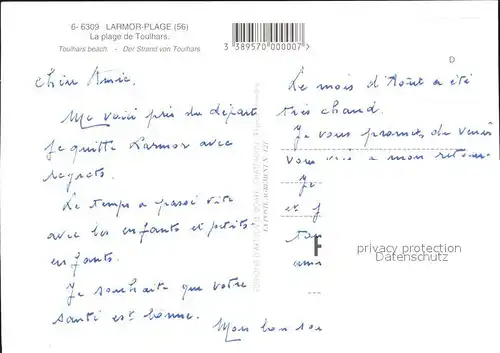 6- 6309 LARMOR-PLAGE (56)
La plage de Toulhars.
Toulhars beach. - Der Strand von Toulhars
3 389570 000007
D
Chère Amie.
Me voici près du départ
Je quitte Larmor avec
regrets.
Le temps a passé vite
avec les enfants et petits-
enfants.
Je souhaite que votre
santé est bonne.
Mon bon sou
Le mois d'Août a été
très chaud.
Je vous promets de venir
vous voir à mon retour
Je
et j
tan
ami
privacy protection
Datenschutz